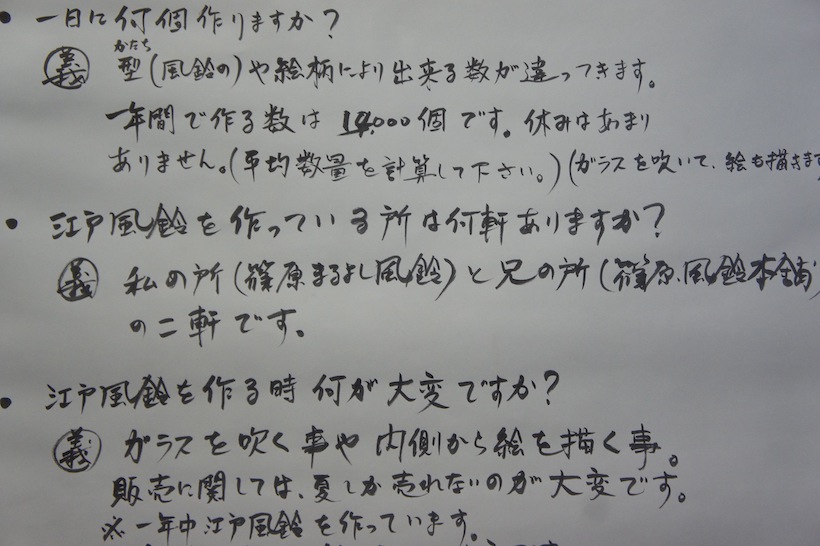 ・一日に何個作りますか？
義 型(風鈴の)や絵柄により出来る数が違ってきます。
かたち
一年間で作る数は 14,000個です。休みはあまり
ありません。(平均数量を計算して下さい。)(ガラスを吹いて、絵も描きます
・江戸風鈴を作っている所は何軒ありますか？
義 私の所(篠原まるよし風鈴)と兄の所(篠原風鈴本舗)
の二軒です。
・江戸風鈴を作る時 何が大変ですか？
義 ガラスを吹く事や内側から絵を描く事。
販売に関しては、夏しか売れないのが大変です。
※一年中江戸風鈴を作っています。